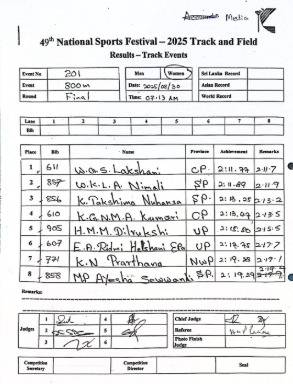 Media
49th National Sports Festival – 2025 Track and Field
Results – Track Events
Event No 201 Men Women Sri Lanka Record
Event 800m Date: 2025/08/30 Asian Record
Round Final Time: 07.13 AM World Record
Lane 1 2 3 4 5 6 7 8
Bib
Place Bib Name Province Achievement Remarks
1 611 W.G.S. Lakshani CP 2:11.77 2:11.7
2 857 W.K.L.A. Nimali SP 2:11.89 2:11.9
3 856 K. Takshima Nuhansa SP 2:13.25 2:13.2
4 610 K.G.N.M.A. Kumari CP 2:13.47 2:13.5
5 905 H.M.M. Dilrukshi UP 2:15.50 2:15.5
6 607 E.A. Ridmi Helshani UP 2:17.7
7 721 K.N. Prarthana NWP 2:19.
8 858 MP Ayesha Sewwandi SP. 2:19.29
Remarks:
Judges 1 4 Chief Judge
2 5 Referee
3 6 Photo Finish Judge
Competition Secretary Competition Director Seal